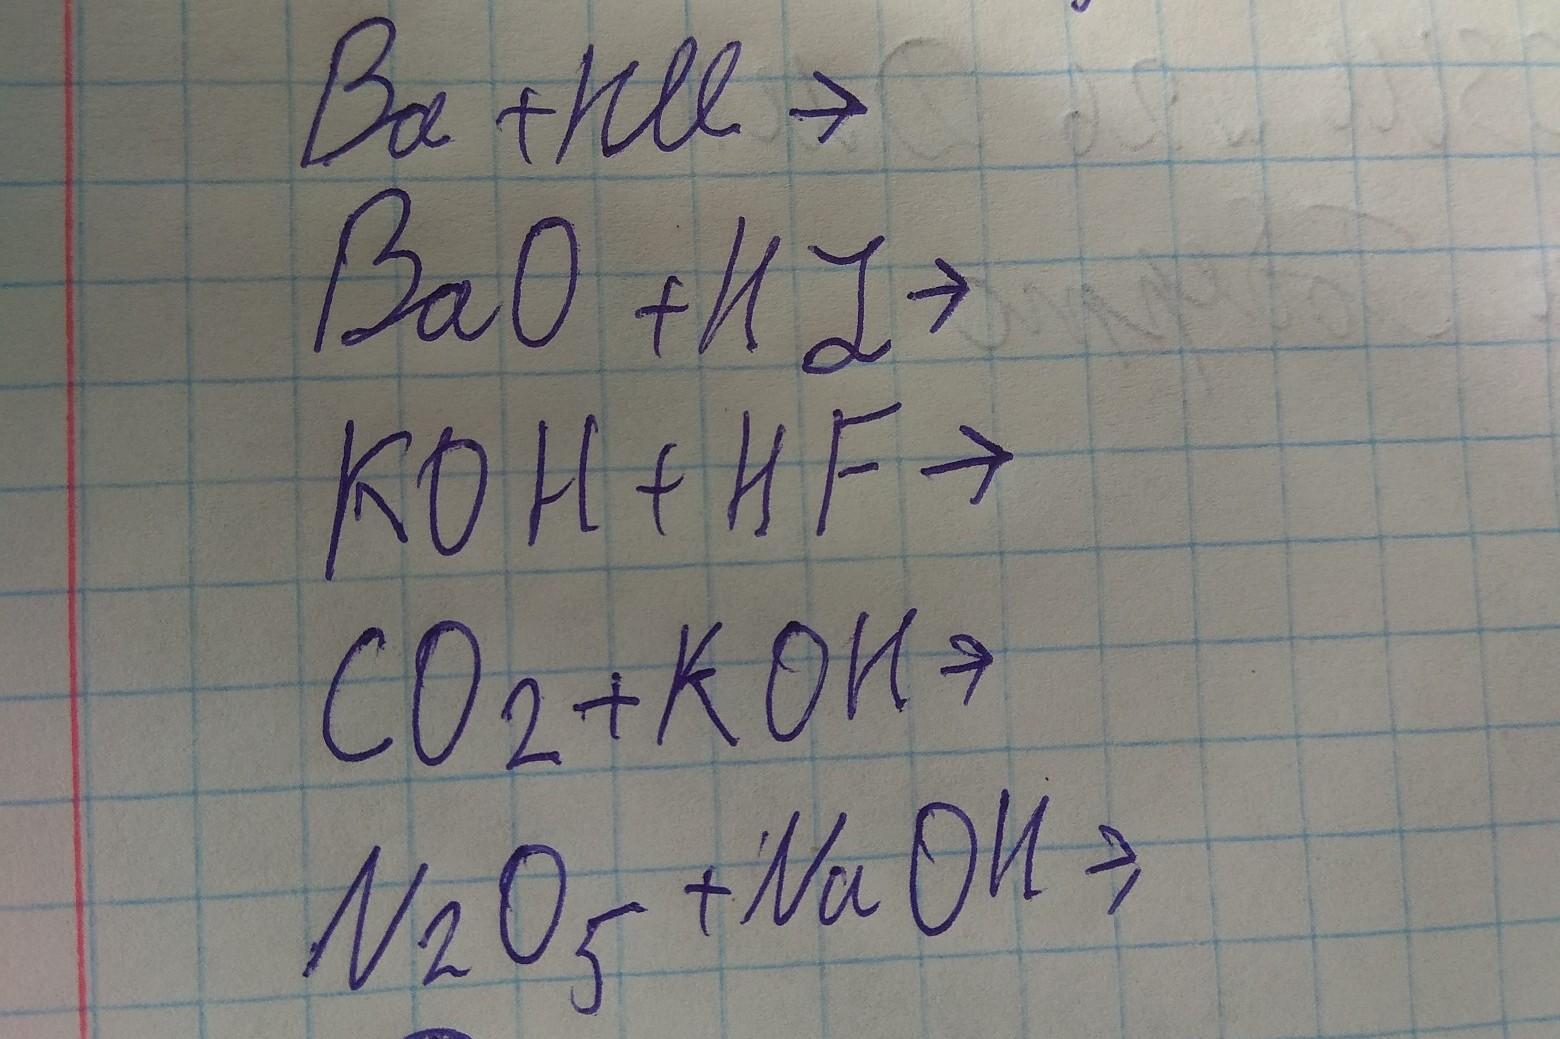 Ba + HCl →
BaO + HJ →
KOH + HF →
CO₂ + KOH →
N₂O₅ + NaOH →